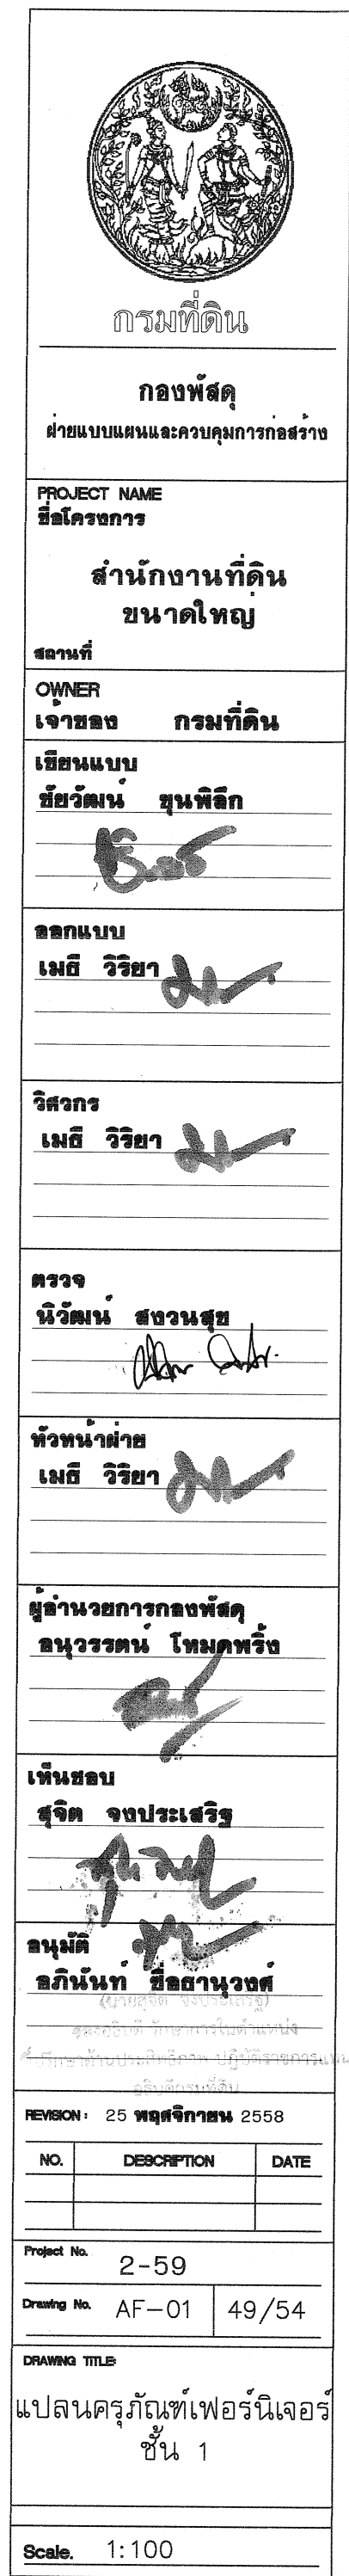 กรมที่ดิน
กองพัสดุ
ฝ่ายแบบแผนและควบคุมการก่อสร้าง
PROJECT NAME
ชื่อโครงการ
สำนักงานที่ดิน
ขนาดใหญ่
สถานที่
OWNER
เจ้าของ กรมที่ดิน
เขียนแบบ
ชัยวัฒน์ ขุนพิลึก
ออกแบบ
เมธี วิริยา
วิศวกร
เมธี วิริยา
ตรวจ
นิวัฒน์ สงวนสุข
หัวหน้าฝ่าย
เมธี วิริยา
ผู้อำนวยการกองพัสดุ
อนุวรรตน์ โหมดพริ้ง
เห็นชอบ
สุจิต จงประเสริฐ
อนุมัติ
อภินันท์ ซื่อธานุวงศ์
(นายสุจิต จงประเสริฐ)
รักษาการในตำแหน่ง
ที่ปรึกษาด้านประสิทธิภาพ ปฏิบัติราชการแทน
อธิบดีกรมที่ดิน
REVISION : 25 พฤศจิกายน 2558
NO. DESCRIPTION DATE
Project No. 2-59
Drawing No. AF-01 49/54
DRAWING TITLE:
แปลนครุภัณฑ์เฟอร์นิเจอร์
ชั้น 1
Scale. 1:100